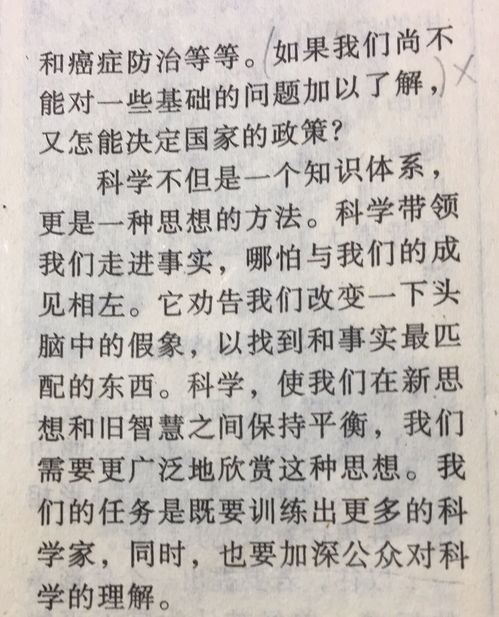 和癌症防治等等。(如果我们尚不
能对一些基础的问题加以了解，)×
又怎能决定国家的政策？
科学不但是一个知识体系，
更是一种思想的方法。科学带领
我们走进事实，哪怕与我们的成
见相左。它劝告我们改变一下头
脑中的假象，以找到和事实最匹
配的东西。科学，使我们在新思
想和旧智慧之间保持平衡，我们
需要更广泛地欣赏这种思想。我
们的任务是既要训练出更多的科
学家，同时，也要加深公众对科
学的理解。